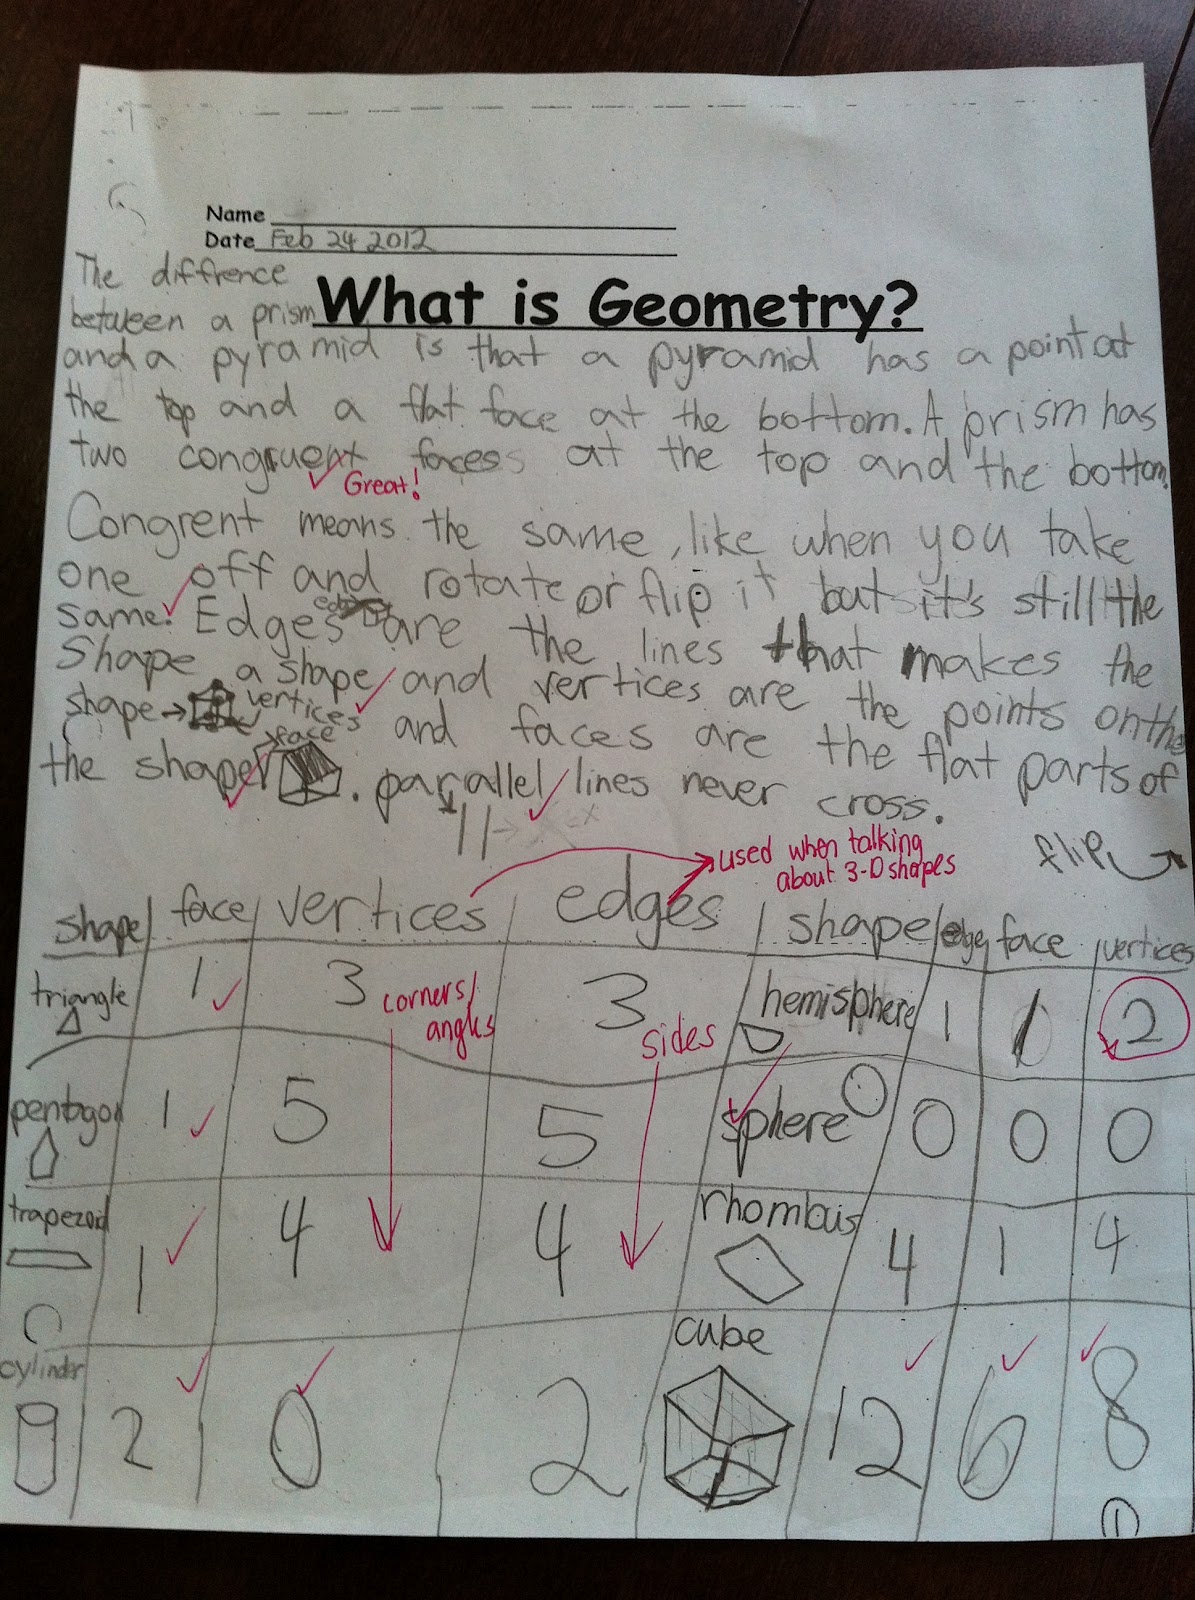 Name
Date Feb 24 2012
What is Geometry?
The diffrence
between a prism
and a pyramid is that a pyramid has a point at
the top and a flat face at the bottom. A prism has
two congruent faces at the top and the bottom.
Great!
Congrent means the same, like when you take
one off and rotate or flip it but it's still the
same. Edges are the lines that makes the
Shape a shape and vertices are the points on the
shape → vertices and faces are the flat parts of
face
the shape . parallel lines never cross.
flip
used when talking
about 3-D shapes
shape face vertices edges shape edge face vertices
triangle 1 3 3 hemisphere 1 1 2
corners/
angles
sides
pentagon 1 5 5 sphere 0 0 0
trapezoid 1 4 4 rhombus 4 1 4
cylinder 2 0 2 cube 12 6 8
1